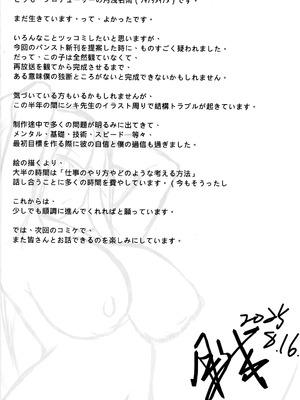 まだ生きています・って、よかったです。
いろんなことツッコミしたいと思いますが
今回のパンスト新刊を提案した時に、ものすごく疑われました。
だって、この子は全然観ていなくて、
再放送を観てから完成させるまで、
ある意味僕の独断どころがないと完成できないかもしれません。
気づいている方もいるかもしれませんが、
この半年の間にシキ先生のイラスト周りで結構トラブルが起きています。
制作途中で多くの問題が明るみに出てきて、
メンタル・基礎・技術・スピード…等々、
最初目標を作る際に彼の自信と僕の過信も過ぎました。
絵の描くより、
大半の時間は「仕事のやり方やどのような考える方法」
話し合うことに多くの時間を費やしています（今もそうったし
これからは、
少しでも順調に進んでくれればと願っています。
では、次回のコミケで、
また皆さんとお話できるのを楽しみにしています。
2025
8.16.